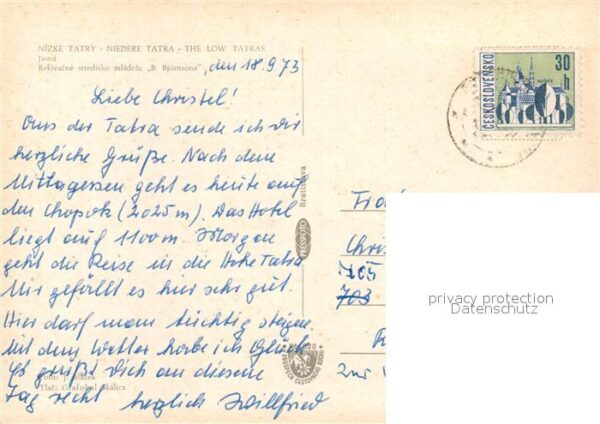 NÍZKE TATRY - NIEDERE TATRA - THE LOW TATRAS
Jasná
Rekreačné stredisko mládeže „B. Björnsona"
, den 18.9.73
Liebe Christel!
Aus der Tatra sende ich dir
herzliche Grüße. Nach dem
Mittagessen geht es heute auf
den Chopok (2025 m). Das Hotel
liegt auf 1100 m. Morgen
geht die Reise in die Hohe Tatra
Mir gefällt es hier sehr gut.
Hier darf man tüchtig steigen.
Mit dem Wetter habe ich Glück.
Es grüßt Dich an diesem
Tag recht herzlich Willfried
Tlač: Grafobal Skalica
Bratislava
PRESSFOTO
ČESKOSLOVENSKO
30 h
Chris
105
703
zur
privacy protection
Datenschutz